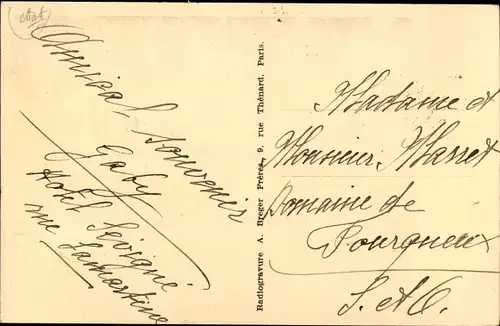 état
Amical Souvenir
Gaby
Hotel Sévigné
rue Lamartine
Radiogravure A. Breger Frères, 9, rue Thénard. Paris.
Madame et
Monsieur Masset
Domaine de
Fourqueux
S. et O.